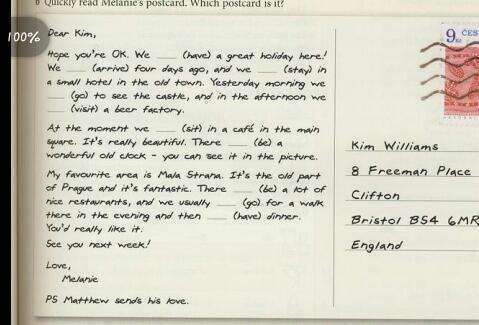 b Quickly read Melanie's postcard. Which postcard is it?
100%
Dear Kim,
Hope you're OK. We ___ (have) a great holiday here!
We ___ (arrive) four days ago, and we ___ (stay) in
a small hotel in the old town. Yesterday morning we
___ (go) to see the castle, and in the afternoon we
___ (visit) a beer factory.
At the moment we ___ (sit) in a café in the main
square. It's really beautiful. There ___ (be) a
wonderful old clock - you can see it in the picture.
My favourite area is Mala Strana. It's the old part
of Prague and it's fantastic. There ___ (be) a lot of
nice restaurants, and we usually ___ (go) for a walk
there in the evening and then ___ (have) dinner.
You'd really like it.
See you next week!
Love,
Melanie
PS Matthew sends his love.
9 ČES
Kim Williams
8 Freeman Place
Clifton
Bristol BS4 6MR
England